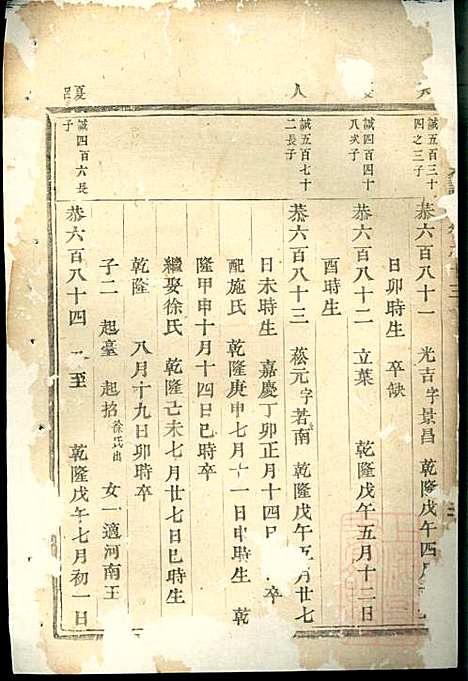 誠五百三十
四之三子
恭六百八十一 光吉字景昌 乾隆戊午四月
日卯時生 卒缺
誠四百四十
八次子
恭六百八十二 立葉 乾隆戊午五月十二日
酉時生
人
誠五百七十
二長子
恭六百八十三 菘元字若南 乾隆戊午五月廿七
日未時生 嘉慶丁卯正月十四日 卒
配施氏 乾隆庚申七月十一日申時生 乾
隆甲申十月十四日巳時卒
繼娶徐氏 乾隆己未七月廿七日巳時生
乾隆 八月十九日卯時卒
子二 起臺 起招徐氏出 女一適河南王
夏
誠四百六長
子
恭六百八十四 至 乾隆戊午七月初一日